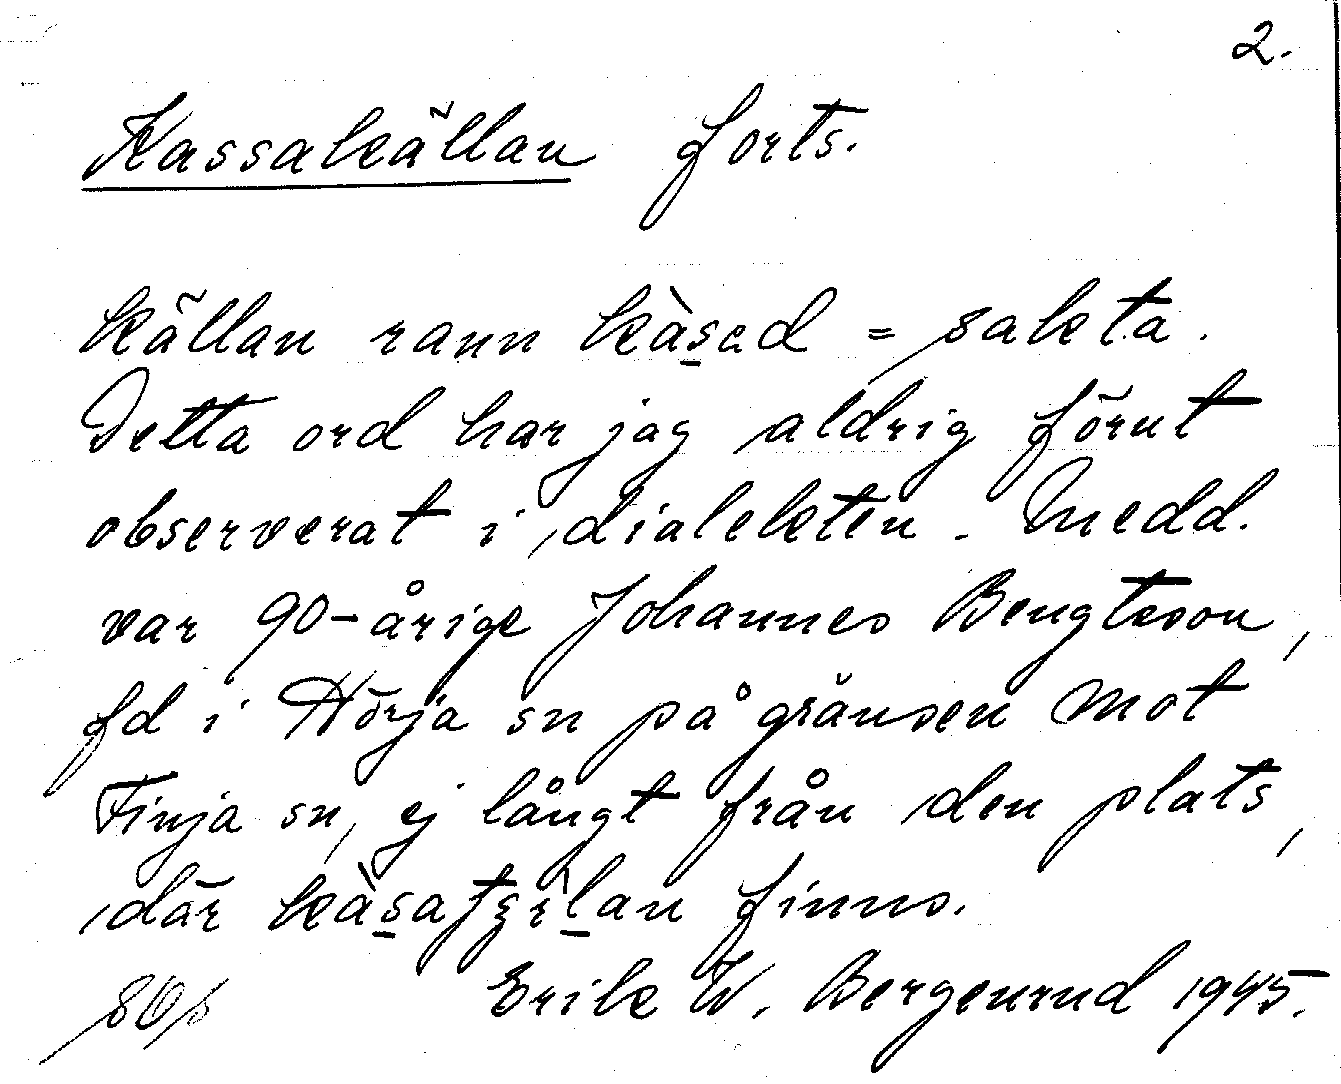 2.
Kassakällan forts.
källan rann kàsad = sakta.
Detta ord har jag aldrig förut
observerat i dialekten. Medd.
var 90-årige Johannes Bengtsson,
fd i Hörja sn på gränsen mot
Finja sn, ej långt från den plats,
där finns.
Erik W. Bergenrud 1945.